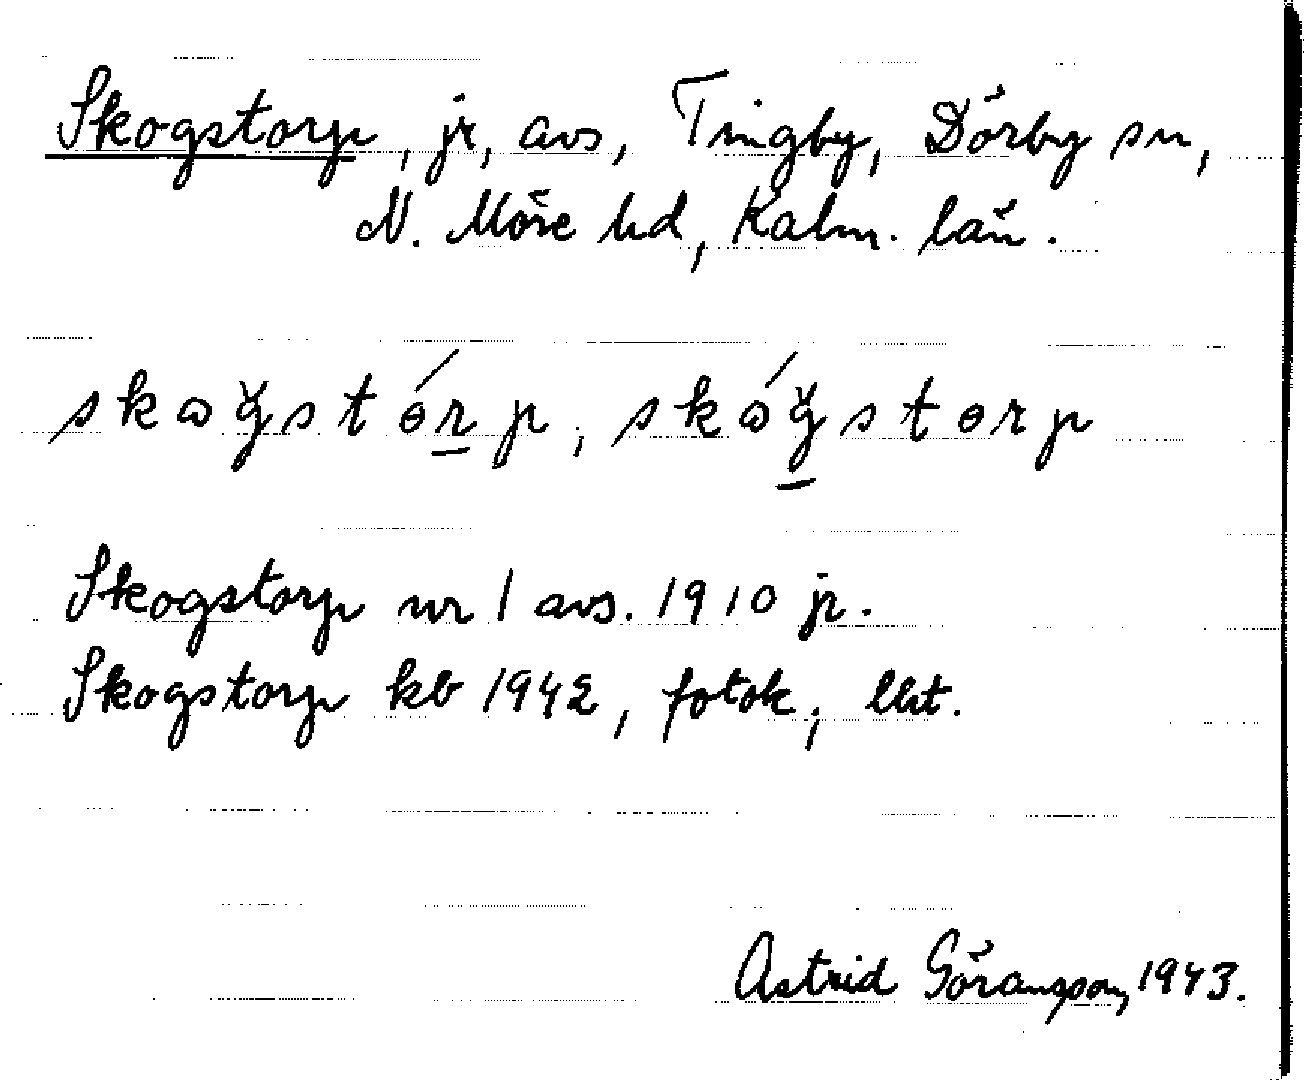 Skogstorp, jr, avs, Tingby, Dörby sn,
N. Möre hd, Kalm. län.
skωgstѳ́rp, skώgstѳrp
Skogstorp nr 1 avs. 1910 jr.
Skogstorp kb 1942, fotok; llat.
Astrid Göransson, 1943.